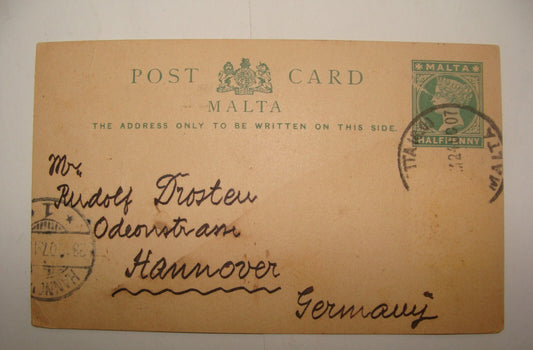 POST CARD
MALTA
THE ADDRESS ONLY TO BE WRITTEN ON THIS SIDE.
MALTA
HALFPENNY
MALTA
07
Mr.
Rudolf Drosten
Odeonstrasse
Hannover
Germany
1
07